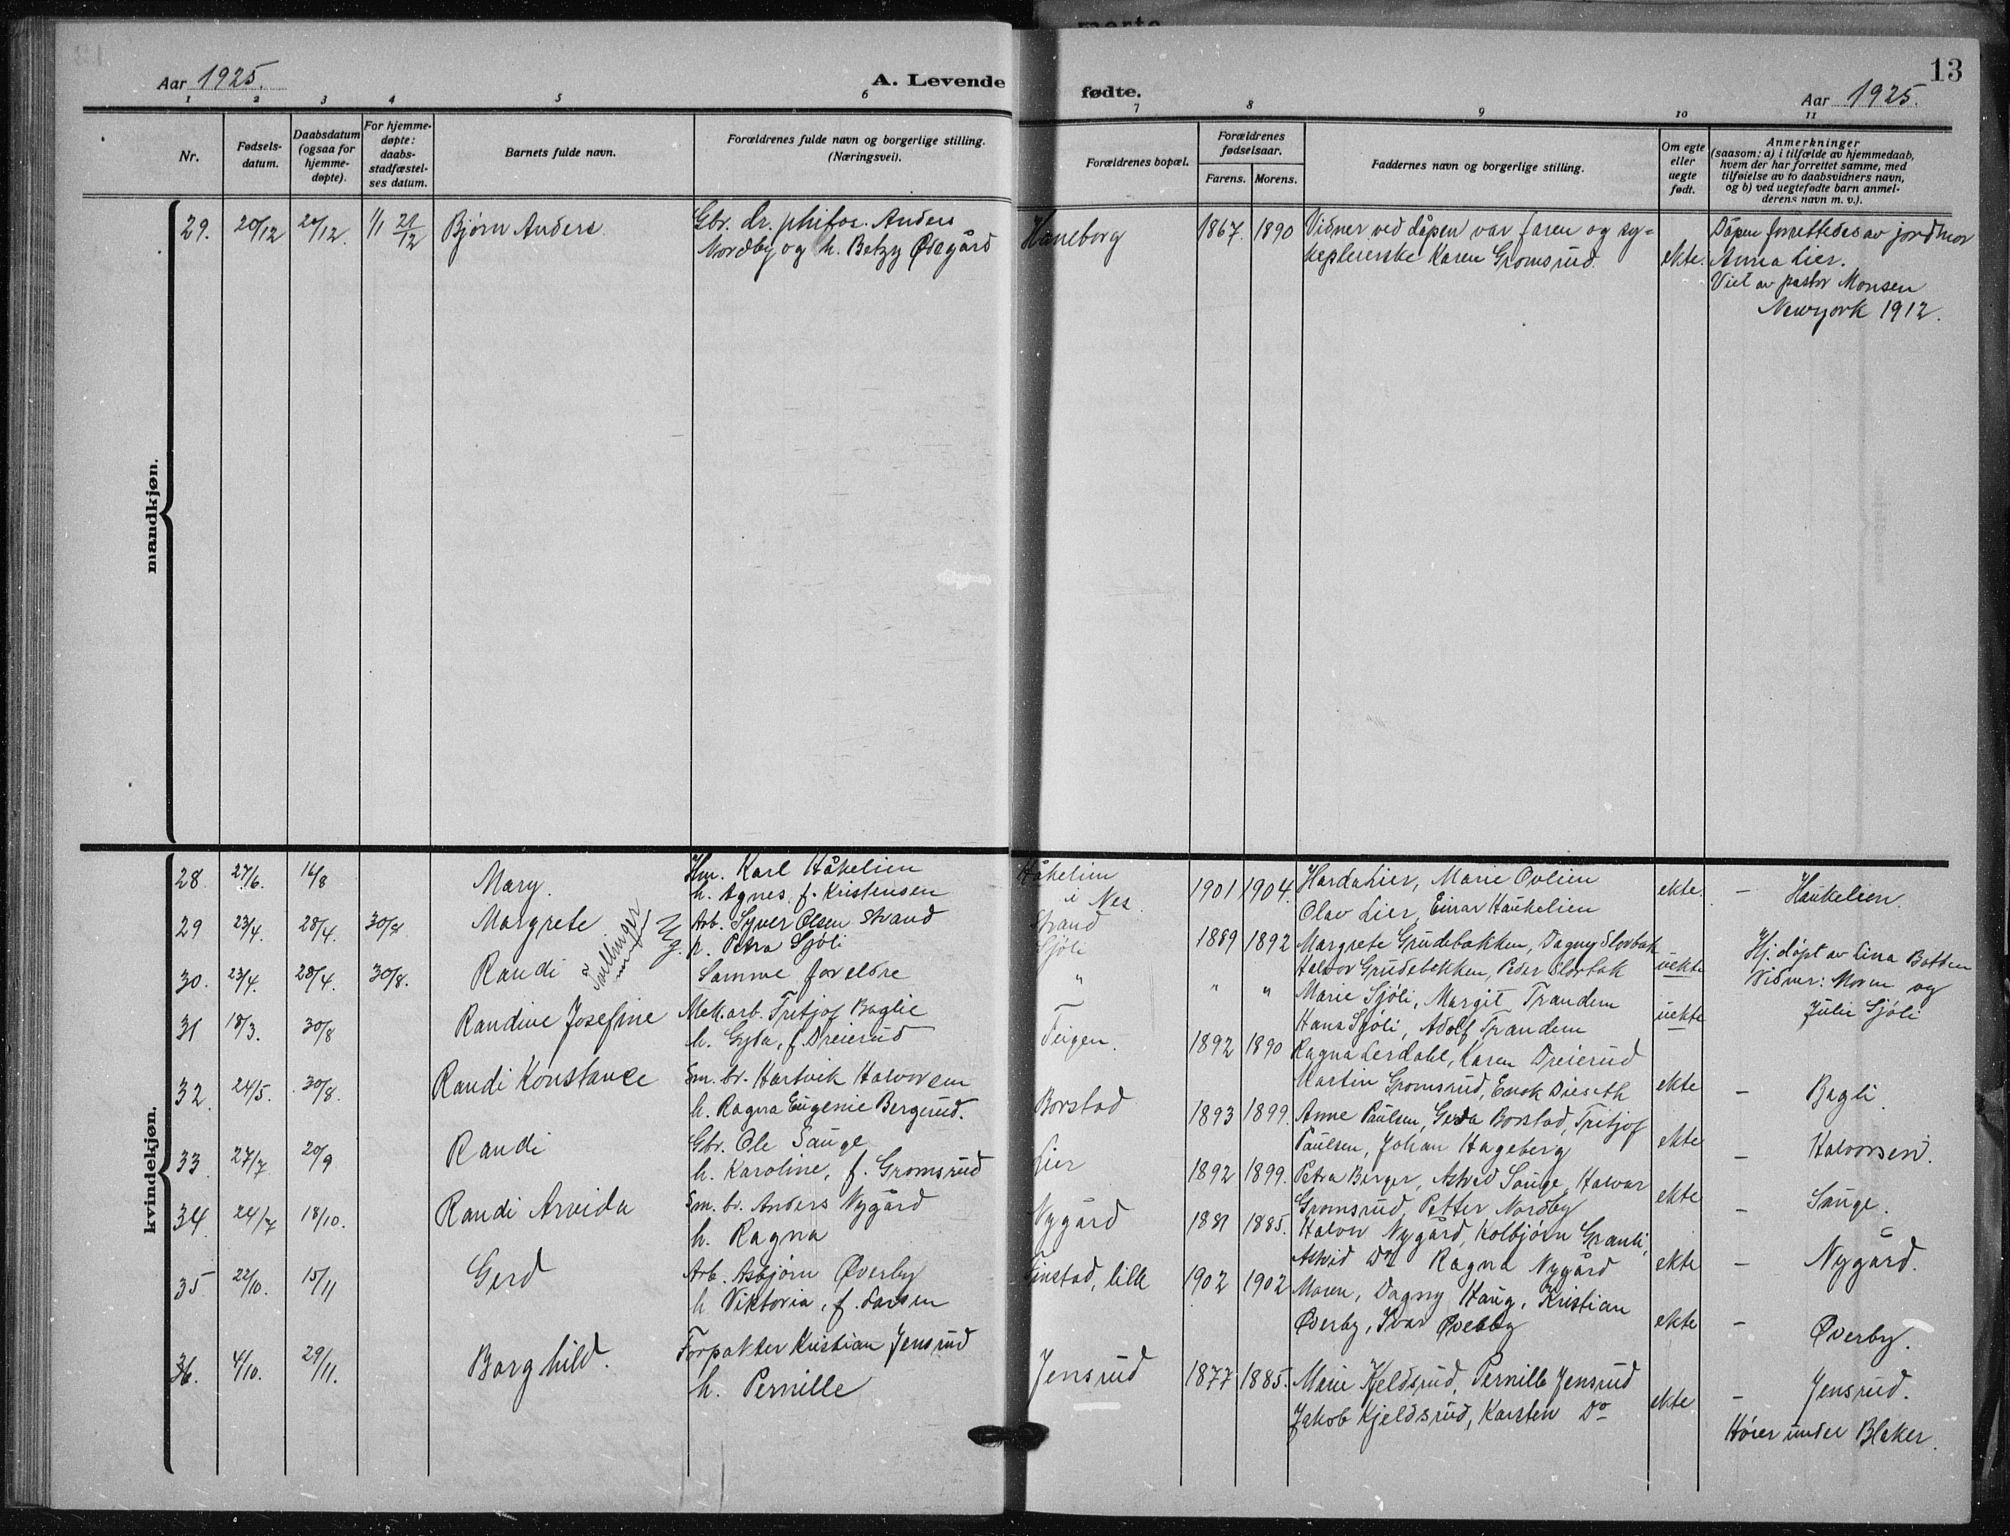 13
Aar 1925.
A. Levende fødte.
Aar 1925.
1 2 3 4 5 6 7 8 9 10 11
Nr.
Fødsels-
datum.
Daabsdatum
(ogsaa for
hjemme-
døpte).
For hjemme-
døpte:
daabs-
stadfæstel-
ses datum.
Barnets fulde navn.
Forældrenes fulde navn og borgerlige stilling.
(Næringsvei).
Forældrenes bopæl.
Forældrenes
fødselsaar.
Farens. Morens.
Faddernes navn og borgerlige stilling.
Om egte
eller
uegte
født.
Anmerkninger
(saasom: a) i tilfælde av hjemmedaab,
hvem der har forrettet samme, med
tilføielse av to daabsvidners navn,
og b) ved uegtefødte barn anmel-
derens navn m. v.).
mandkjøn.
29. 20/12 20/12. Bjørn Anders
Gbr. dr. philos. Anders
Nordby og h. Betzy Ødegård
Haneborg 1867. 1890
Vidner ved dåpen var faren og sy-
kepleierske Karen Gromsrud.
ekte.
Dåpen forrettedes av jordmor
Anna Lier.
Viet av pastor Monsen
Newyork 1912.
kvindekjøn.
28. 27/6. 16/8 Mary.
Hm. Karl Håkelien
h. Agnes f. Kristensen
Håkelien
i Nes 1901 1904.
Harda Lier, Marie Ovlien
Olav Lier, Einar Haukelien
ekte. – Haukelien.
29 23/4. 28/4. Margrete
Tvillinger
Arb. Syver Olsen Strand
p. Petra Sjøli
Strand
Sjøli 1889 1892
Margrete Grudebakken, Dagny Slorbak
Halvor Grudebakken, Peder Slorbak
uekte
Hj. døpt av Lina Batten
Vidner: Moren og
Julie Sjøli
30. 23/4. 28/4. 30/8. Randi
Samme foreldre
" " "
Marie Sjøli, Margit Trandem
Hans Sjøli, Adolf Trandem
uekte
31 18/3. 30/8 Randine Josefine
Mek.arb. Fritjof Baglie
h. Gyda, f. Dreierud
Teigen. 1892 1890
Ragna Lerdahl, Karen Dreierud
Martin Gromsrud, Enok Diseth
ekte – Bagli.
32. 24/5. 30/8. Randi Konstance
Sm. br. Hartvik Halvorsen
h. Ragna Eugenie Bergerud.
Borstad 1893 1899.
Anne Paulsen, Gerda Borstad, Fritjof
Paulsen, Johan Hageberg
ekte – Halvorsen.
33. 27/7 20/9 Randi
Gbr. Ole Sauge
h. Karoline, f. Gromsrud
Lier 1892 1899.
Petra Berger, Astrid Sauge, Halvar
Gromsrud, Petter Nordby
ekte – Sauge.
34. 24/7 18/10. Randi Arvida
Sm. br. Anders Nygård
h. Ragna
Nygård 1881 1885.
Halvor Nygård, Kolbjørn Granli,
Astrid Do Ragna Nygård
ekte – Nygård.
35 22/10. 15/11 Gerd
Arb. Asbjørn Øverby
h. Viktoria, f. Larsen
Finstad, lille 1902 1902
Moren, Dagny Haug, Kristian
Øverby, Ivar Øverby
ekte – Øverby.
36. 4/10. 29/11. Borghild.
Forpakter Kristian Jensrud
h. Pernille
Jensrud 1877 1885.
Marie Kjeldsrud, Pernille Jensrud
Jakob Kjeldsrud, Karsten Do
ekte – Jensrud.
Hører under Blaker.